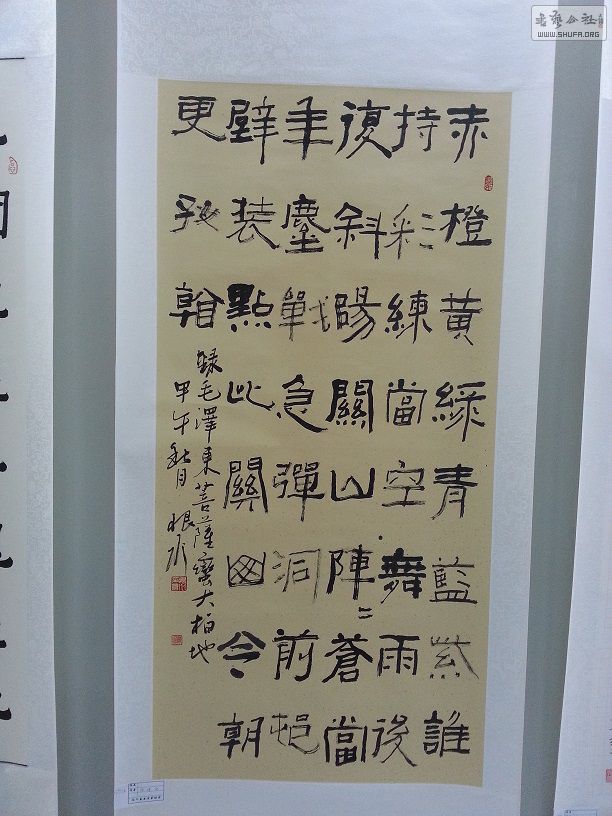 赤橙黃綠青藍紫誰
持彩練當空舞雨後
復斜陽關山陣〻蒼當
年塵戰急彈洞前邨
壁裝點此關山今朝
更好看
錄毛澤東菩薩蠻大柏地
甲午秋月根
书艺公社
WWW.SHUFA.ORG